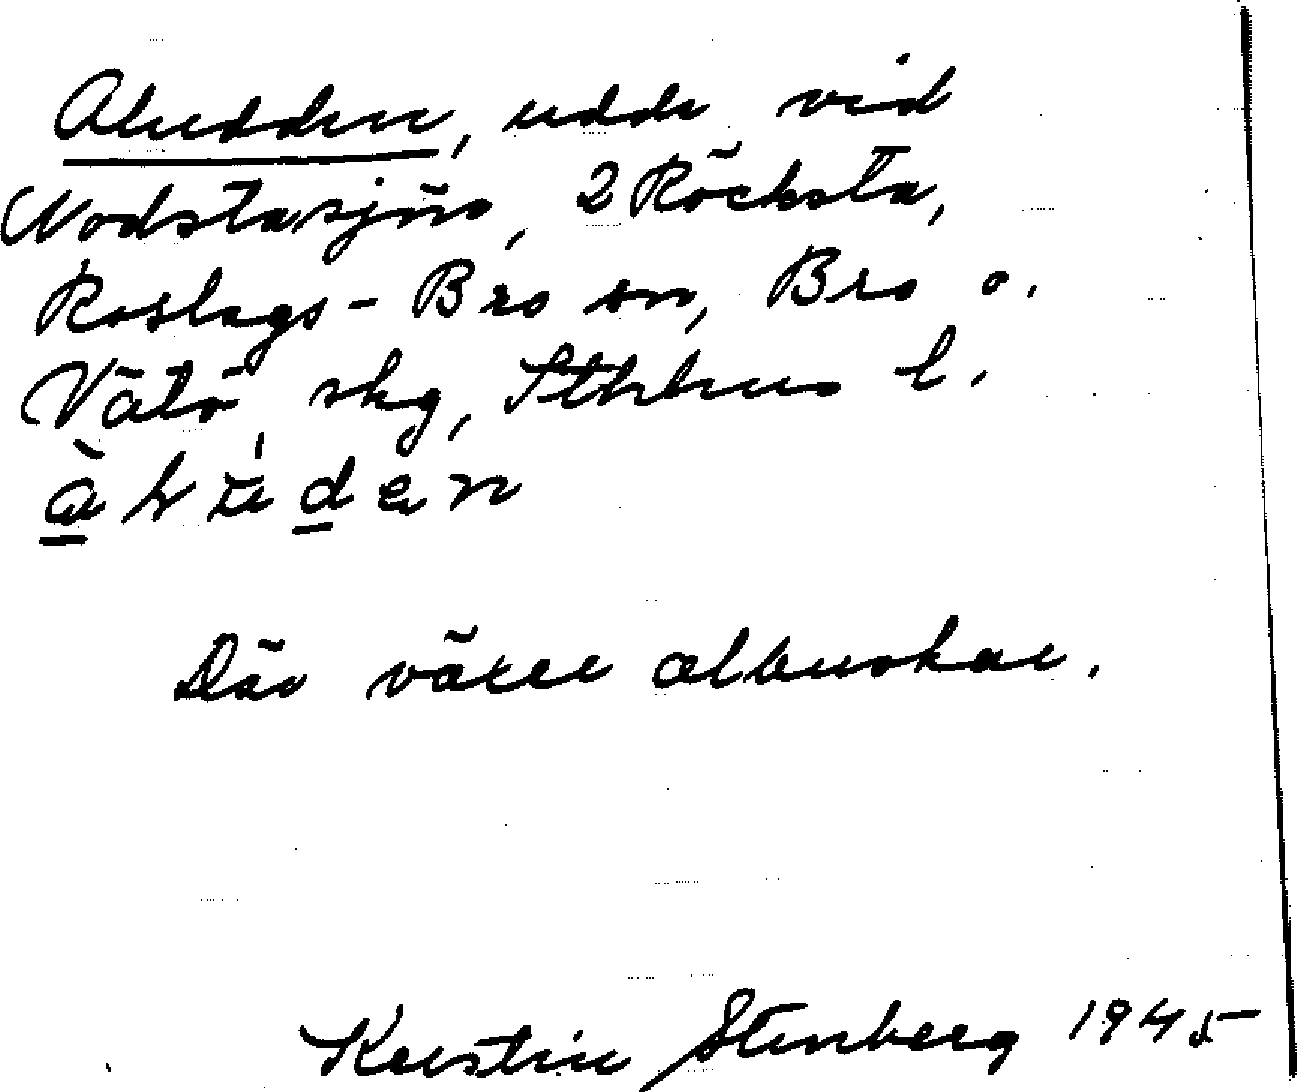 Aludden, udde vid
Nodstasjön, 2 Röcksta,
Roslags-Bro sn, Bro o.
Vätö skg, Sthlms l.
Där växer albuskar.
Kerstin Stenberg 1945